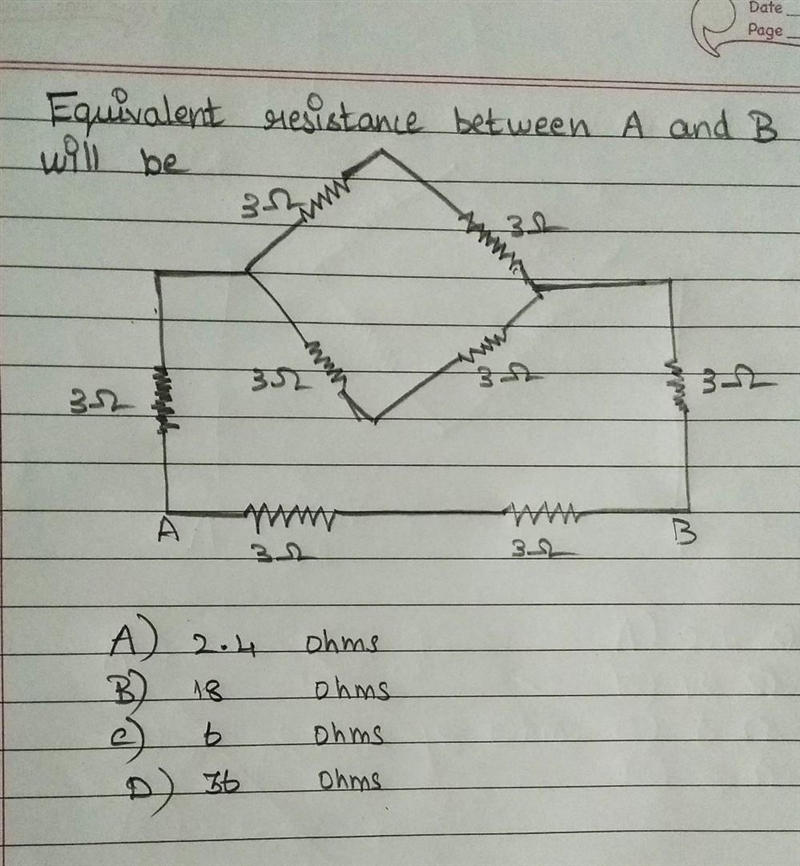 Date
Page
Equivalent resistance between A and B
will be
3Ω
3Ω
3Ω
3Ω
3Ω
3Ω
A
B
3Ω
3Ω
A) 2.4 ohms
B) 18 ohms
C) 6 ohms
D) 36 ohms